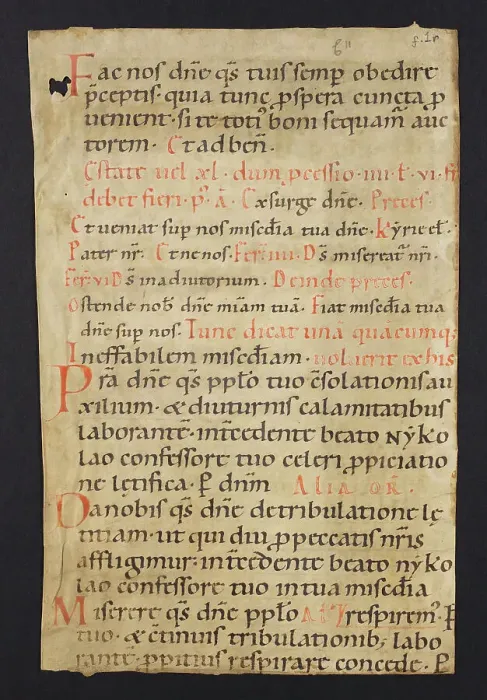 6"
f.1r
Fac nos dn̄e qs̄ tuis semp̄ obedire
p̄ceptis· quia tunc ꝓspera cuncta ꝓ
uenient· si te totiꝰ boni sequam̄ auc
torem· Et ad ben̄·
Estate uel æl· dum ꝓcessio· iiii· t̄· vi· fr̄
debet fieri· p̄· A· Exsurge dn̄e· Preces·
Et ueniat sup nos misc̄dia tua dn̄e· kyrie el̄·
Pater nr̄· Et ne nos· Fer̄· iiii· Ds̄ misereatᷓ nr̄i·
Fer̄· vi· Ds̄ in adiutorium· Deinde preces·
Ostende nob̄ dn̄e mīam tuā· Fiat misc̄dia tua
dn̄e sup nos· Tunc dicat unā quācumq;
Ineffabilem misc̄diam· uoluerit ex his
Prā dn̄e qs̄ ppl̄o tuo c̄solationis au
xilium· & diuturnis calamitatibus
laborantē· int̄cedente beato nẏko
lao confessore tuo celeri ꝓpiciatio
ne lętifica· P̄ dnm̄ Alia or̄·
Da nobis qs̄ dn̄e de tribulatione lę
titiam· ut qui diu ꝓ peccatis nr̄is
affligimur· int̄cedente beato nẏko
lao confessore tuo in tua misc̄dia
Miserere qs̄ dn̄e ppl̄o respirem̄· P̄
tuo· & c̄tinuis tribulationib; labo
rantē· ꝓpitius respirare concede· P̄